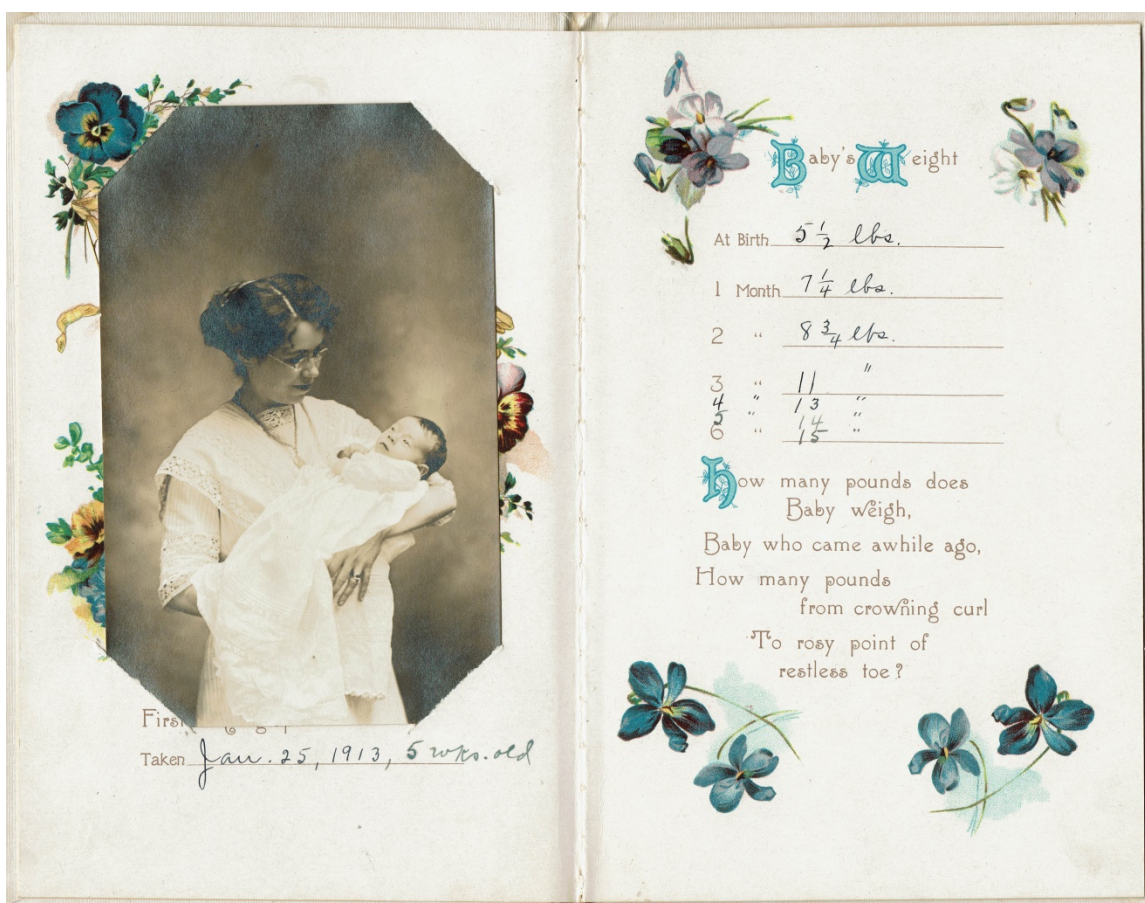 First
Taken Jan. 25, 1913, 5 wks. old
Baby's Weight
At Birth 5 1/2 lbs.
1 Month 7 1/4 lbs.
2 " 8 3/4 lbs.
3 " 11 "
4 " 13 "
5 " 14 "
6 " 15 "
How many pounds does
Baby weigh,
Baby who came awhile ago,
How many pounds
from crowning curl
To rosy point of
restless toe?